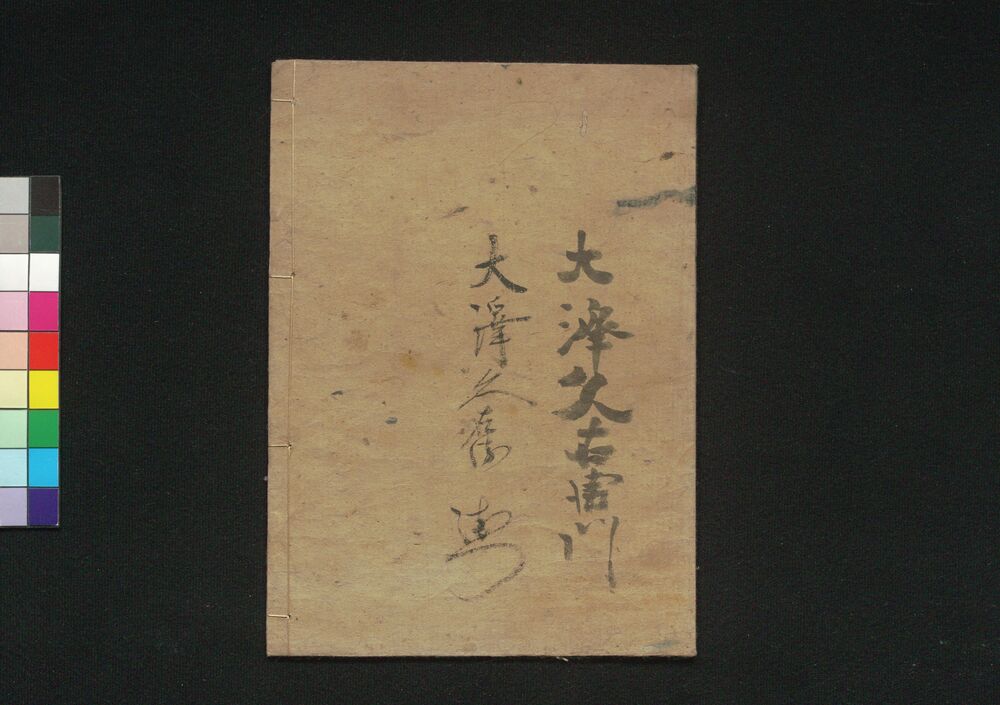 大澤久右衛門
大澤久